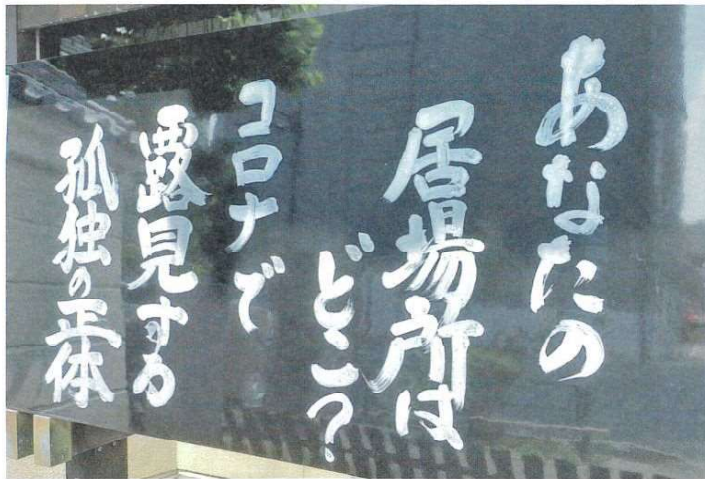 あなたの
居場所は
どこ？
コロナで
露見する
孤独の正体